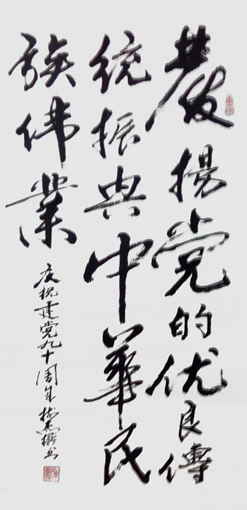 發揚党的优良傳
統振興中華民
族伟業
庆祝建党九十周年